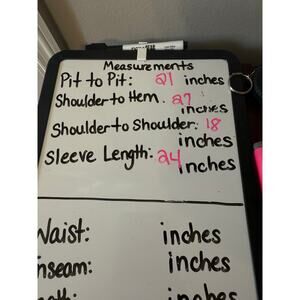 Measurements
Pit to Pit: 21 inches
Shoulder to Hem. 27 inches
Shoulder to Shoulder: 18 inches
Sleeve Length: 24 inches
Waist: inches
nseam: inches
inches